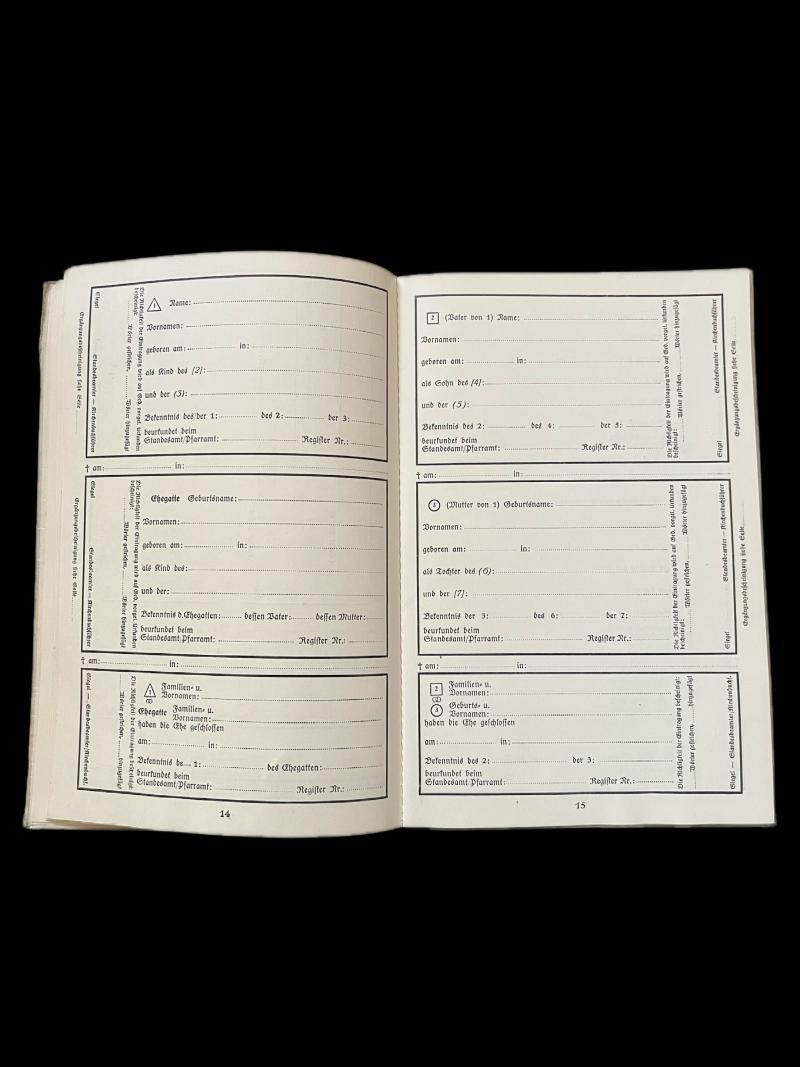 1 Name:
Vornamen:
geboren am: in:
als Kind des (2):
und der (3):
Bekenntnis des/der 1: des 2: der 3:
beurkundet beim
Standesamt/Pfarramt: Register Nr.:
Die Richtigkeit der Eintragung wird auf Grd. vorgel. Urkunden
bescheinigt:
Wörter gestrichen, Wörter hinzugefügt
Siegel Standesbeamter — Kirchenbuchführer
Ergänzungsbescheinigung siehe Seite
† am: in:
Ehegatte Geburtsname:
Vornamen:
geboren am: in:
als Kind des:
und der:
Bekenntnis d. Ehegatten: dessen Vater: dessen Mutter:
beurkundet beim
Standesamt/Pfarramt: Register Nr.:
Die Richtigkeit der Eintragung wird auf Grd. vorgel. Urkunden
bescheinigt:
Wörter gestrichen, Wörter hinzugefügt
Siegel Standesbeamter — Kirchenbuchführer
Ergänzungsbescheinigung siehe Seite
† am: in:
1 Familien- u.
Vornamen:
Ehegatte Familien- u.
Vornamen:
haben die Ehe geschlossen
am: in:
Bekenntnis de 1: des Ehegatten:
beurkundet beim
Standesamt/Pfarramt: Register Nr.:
Die Richtigkeit der Eintragung bescheinigt:
Wörter gestrichen, hinzugefügt
Siegel — Standesbeamter/Kirchenbuchf.
14
2 (Vater von 1) Name:
Vornamen:
geboren am: in:
als Sohn des (4):
und der (5):
Bekenntnis des 2: des 4: der 5:
beurkundet beim
Standesamt/Pfarramt: Register Nr.:
Die Richtigkeit der Eintragung wird auf Grd. vorgel. Urkunden
bescheinigt: Wörter gestrichen, Wörter hinzugefügt
Siegel Standesbeamter — Kirchenbuchführer
Ergänzungsbescheinigung siehe Seite
† am: in:
3 (Mutter von 1) Geburtsname:
Vornamen:
geboren am: in:
als Tochter des (6):
und der (7):
Bekenntnis der 3: des 6: der 7:
beurkundet beim
Standesamt/Pfarramt: Register Nr.:
Die Richtigkeit der Eintragung wird auf Grd. vorgel. Urkunden
bescheinigt: Wörter gestrichen, Wörter hinzugefügt
Siegel Standesbeamter — Kirchenbuchführer
Ergänzungsbescheinigung siehe Seite
† am: in:
2 Familien- u.
Vornamen:
3 Geburts- u.
Vornamen:
haben die Ehe geschlossen
am: in:
Bekenntnis des 2: der 3:
beurkundet beim
Standesamt/Pfarramt: Register Nr.:
Die Richtigkeit der Eintragung bescheinigt:
Wörter gestrichen, hinzugefügt
Siegel — Standesbeamter/Kirchenbuchf.
15